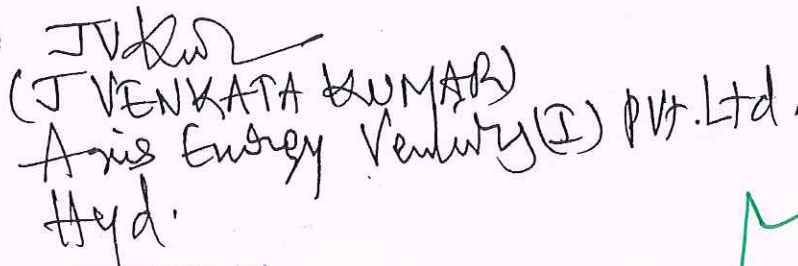 JVKumar
(J VENKATA KUMAR)
Axis Energy Ventures (I) Pvt. Ltd.
Hyd.